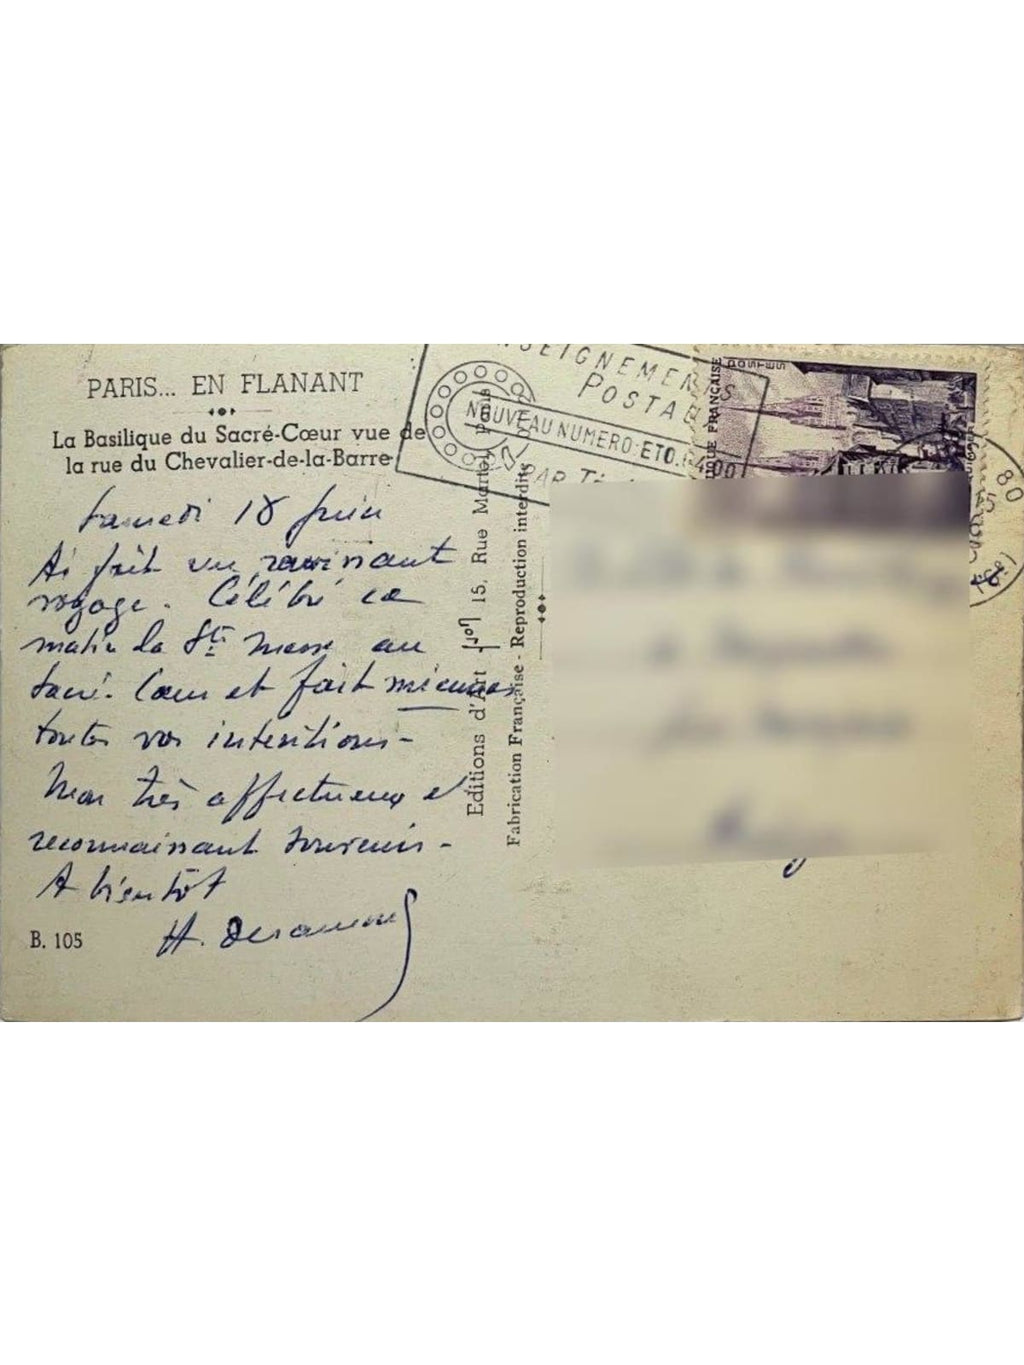 PARIS... EN FLANANT
La Basilique du Sacré-Cœur vue de
la rue du Chevalier-de-la-Barre
Samedi 18 Juin
Ai fait un ravissant
voyage. Célébré ce
matin la Ste messe au
Sacré-Cœur et fait miennes
toutes vos intentions-
Mon très affectueux et
reconnaissant souvenir-
A bientôt
B. 105
H.
Editions d'Art 15, Rue Martel Paris
Fabrication Française - Reproduction interdite
NSEIGNEMENTS
POSTAUX
NOUVEAU NUMERO: ETO.64.00
PAR
FRANÇAISE
POSTES